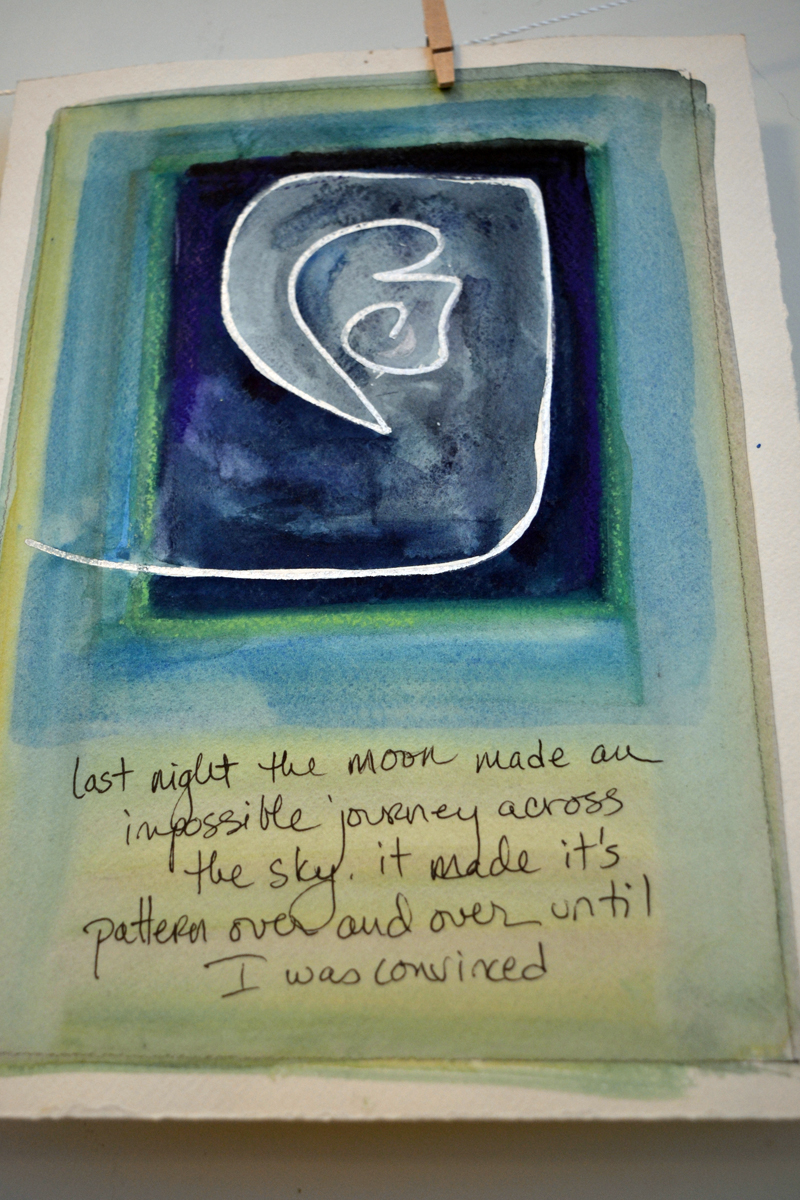 last night the moon made an
impossible journey across
the sky. it made it's
pattern over and over until
I was convinced